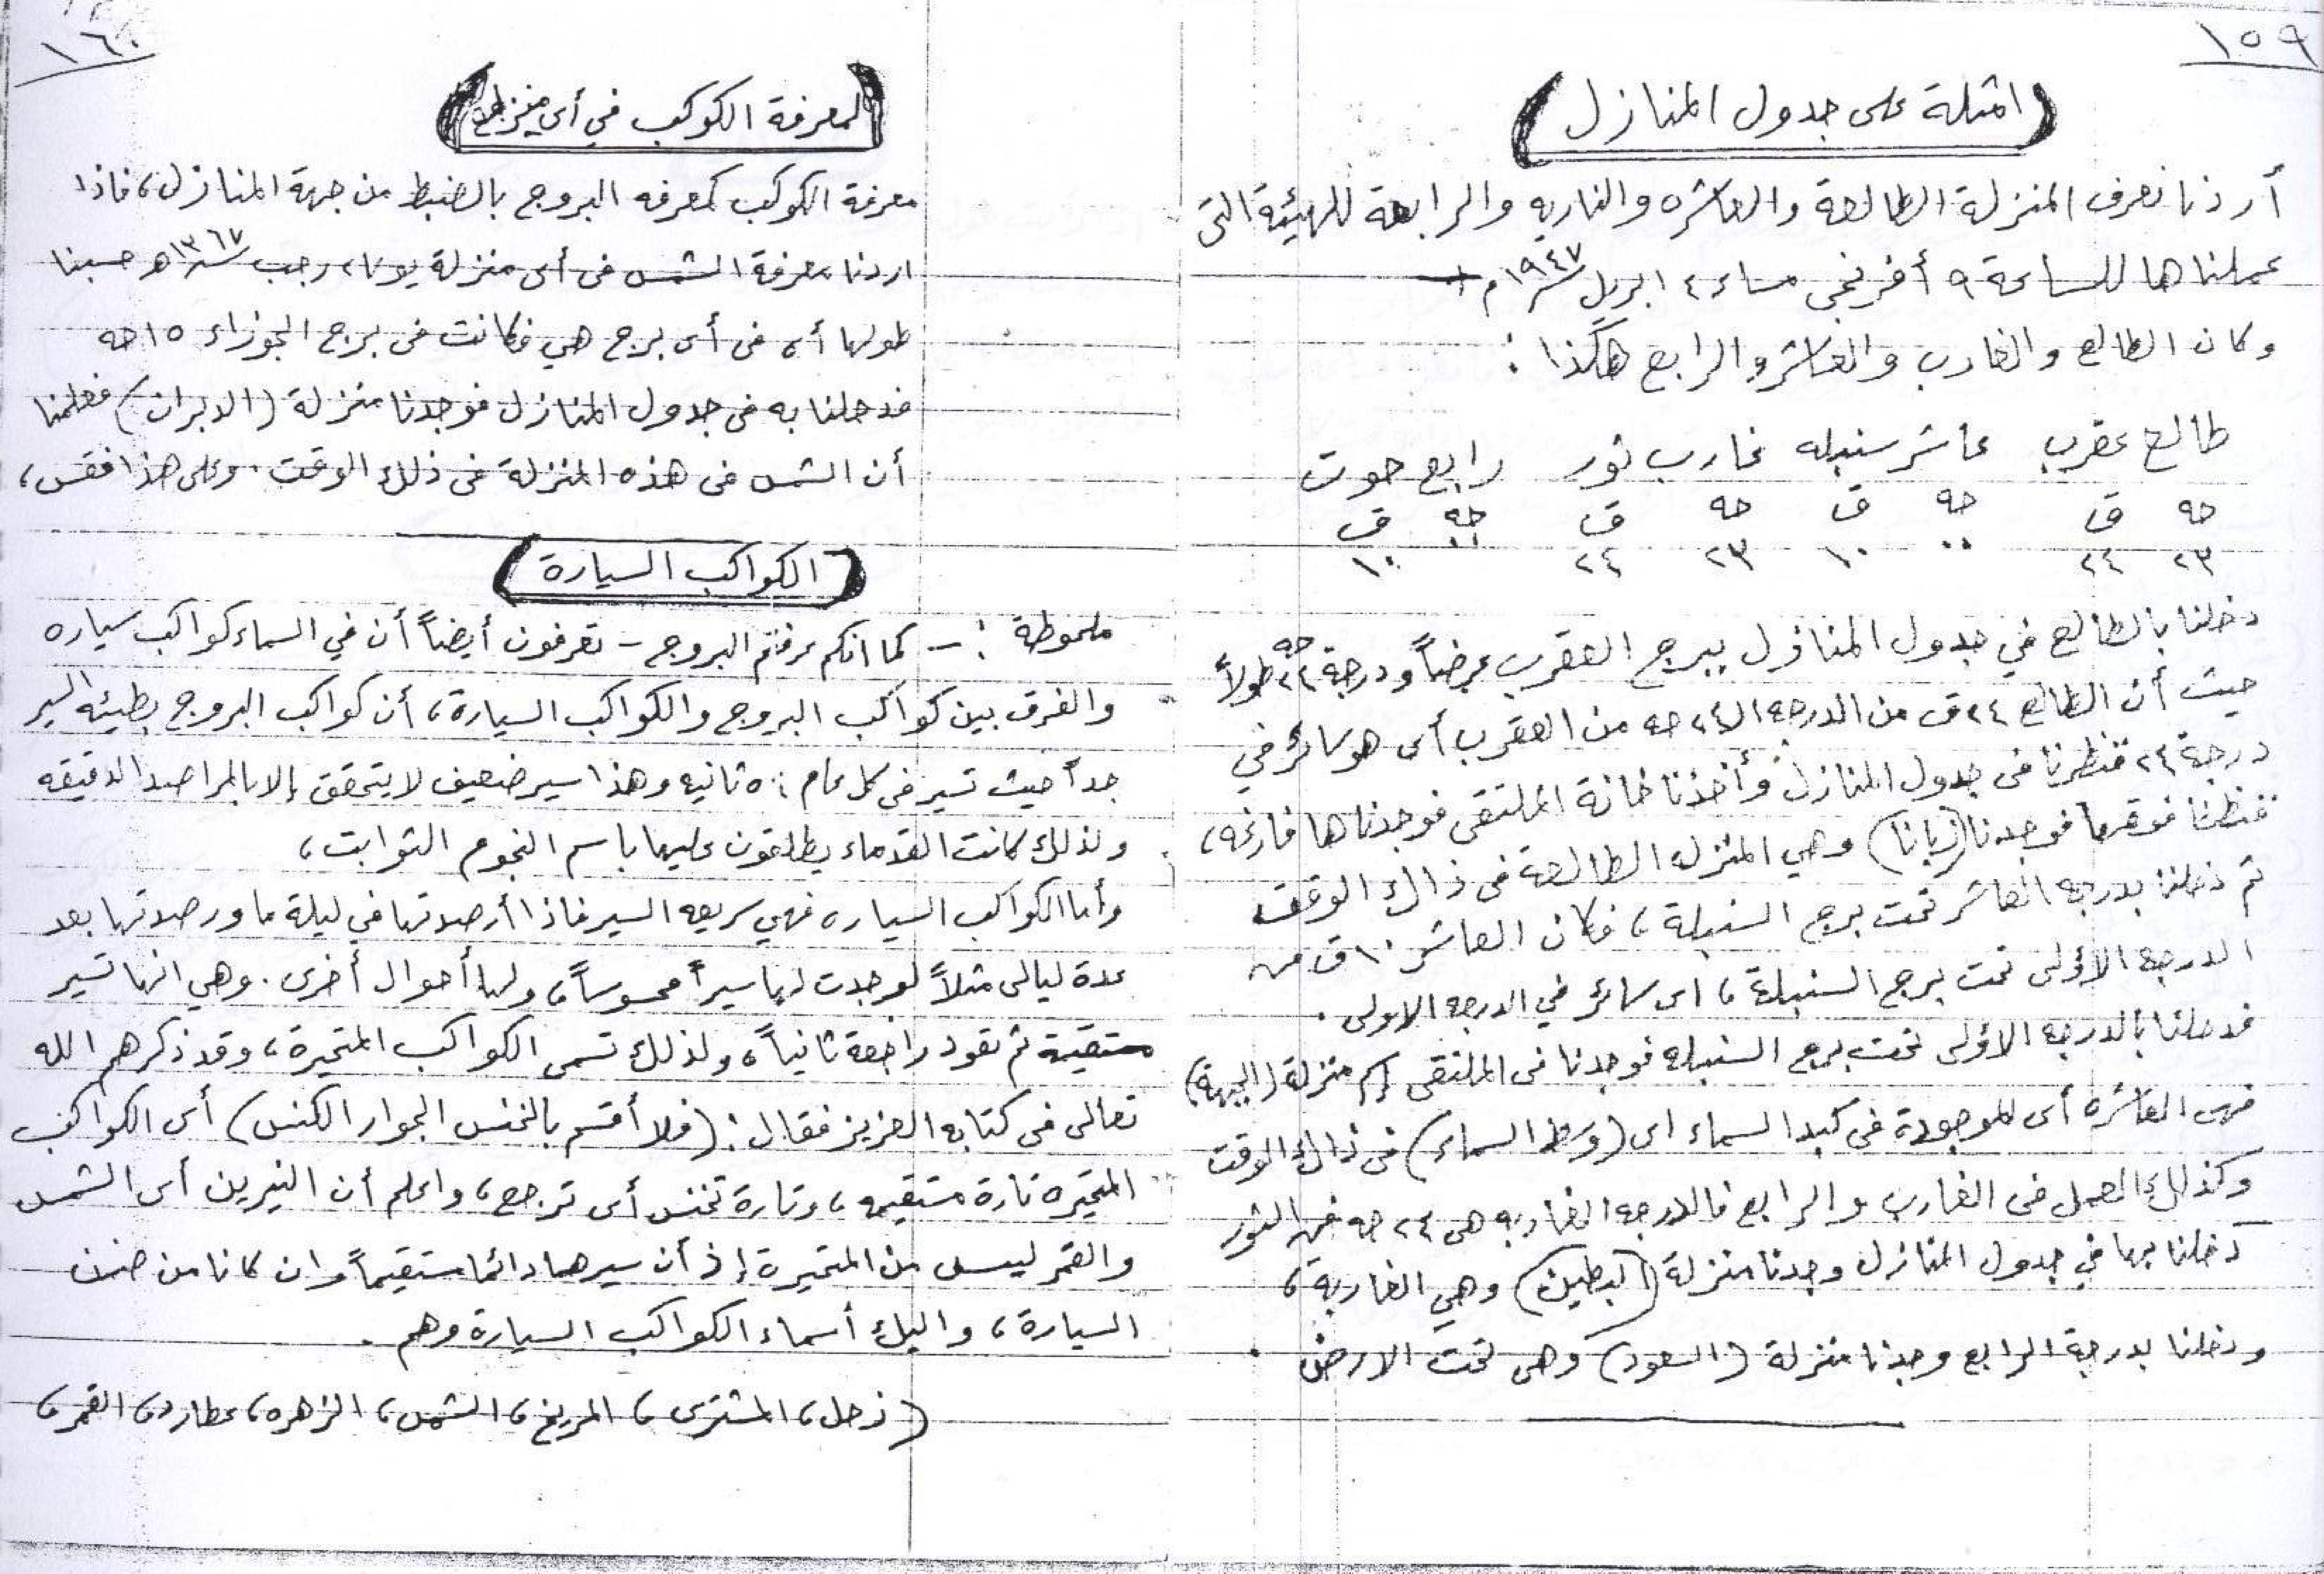 ١٥٩
(امثلة على جدول المنازل)
أردنا نعرف المنزلة الطالعة والعاشره والغاربه والرابعة للهيئة التى
عملناها للساعة ٩ أفرنجى مساء ٤ ابريل سنة ١٩٤٧ م
وكان الطالع والغارب والعاشر والرابع هكذا :
طالع عقرب عاشر سنبله غارب ثور رابع حوت
حه ق حه ق حه ق حه ق
٢٣ ٢٤ ٠٠ ١٠ ٢٣ ٢٤ ٠٠ ١٠
دخلنا بالطالع في جدول المنازل ببرج العقرب عرضاً ودرجة ٢٤ حه طولاً
حيث أن الطالع ٢٤ ق من الدرجه الـ ٢٤ حه من العقرب أى هو سائر في
درجة ٢٤ فنظرنا فى جدول المنازل وأخذنا خانة الملتقى فوجدناها فارغه ،
فنظرنا فوقها فوجدنا (زبانا) وهي المنزله الطالعة فى ذالك الوقت
ثم دخلنا بدرجه العاشر تحت برج السنبلة ، فكان العاشر ١٠ ق من
الدرجه الاؤلى تحت برج السنبلة ، اى سائر في الدرجه الاولى .
فدخلنا بالدرجه الاؤلى تحت برج السنبله فوجدنا فى الملتقى إسم منزلة (الجبهة)
فهى العاشره أى الموجودة فى كبد السماء اى (وسط السماء) فى ذالك الوقت
وكذلك العمل فى الغارب والرابع فالدرجه الغاربه هى ٢٤ حه من الثور
دخلنا بها في جدول المنازل وجدنا منزلة (البطين) وهي الغاربة ،
ودخلنا بدرجة الرابع وجدنا منزلة (السعود) وهى تحت الارض .
١٦٠
(لمعرفة الكوكب في أى منزلة)
معرفة الكوكب كمعرفه البروج بالضبط من جهة المنازل ، فاذا
اردنا معرفة الشمس فى أى منزلة يوم رجب سنة ١٣٦٧ هـ حسبنا
طولها أى فى أى برج هي فكانت فى برج الجوزاء ١٥ حه
فدخلنا به فى جدول المنازل فوجدنا منزلة (الدبران) فعلمنا
أن الشمس فى هذه المنزلة فى ذلك الوقت . وعلى هذا فقس ،
(الكواكب السيارة)
ملحوظة :- كما انكم عرفتم البروج - تعرفون أيضاً أن في السماء كواكب سياره
والفرق بين كواكب البروج والكواكب السيارة ، أن كواكب البروج بطيئه السير
جداً حيث تسير فى كل عام ٥٠ ثانيه وهذا سير ضعيف لا يتحقق إلا بالمراصد الدقيقه
ولذلك كانت القدماء يطلقون عليها باسم النجوم الثوابت ،
وأما الكواكب السياره فهي سريعه السير فاذا أرصدتها في ليلة ما ورصدتها بعد
عدة ليالى مثلاً لوجدت لها سيراً محسوساً ، ولها أحوال أخرى . وهي انها تسير
مستقيمة ثم تعود راجعة ثانياً ، ولذلك تسمى الكواكب المتحيرة ، وقد ذكرهم الله
تعالى فى كتابه العزيز فقال : (فلا أقسم بالخنس الجوار الكنس) أى الكواكب
المتحيره تارة مستقيمه ، وتارة تخنس أى ترجع ، واعلم أن النيرين أى الشمس
والقمر ليسا من المتحيرة إذ أن سيرهما دائما مستقيماً وان كانا من ضمن
السيارة ، واليك أسماء الكواكب السيارة وهم .
(زحل ، المشترى ، المريخ ، الشمس ، الزهره ، عطارد ، القمر ،